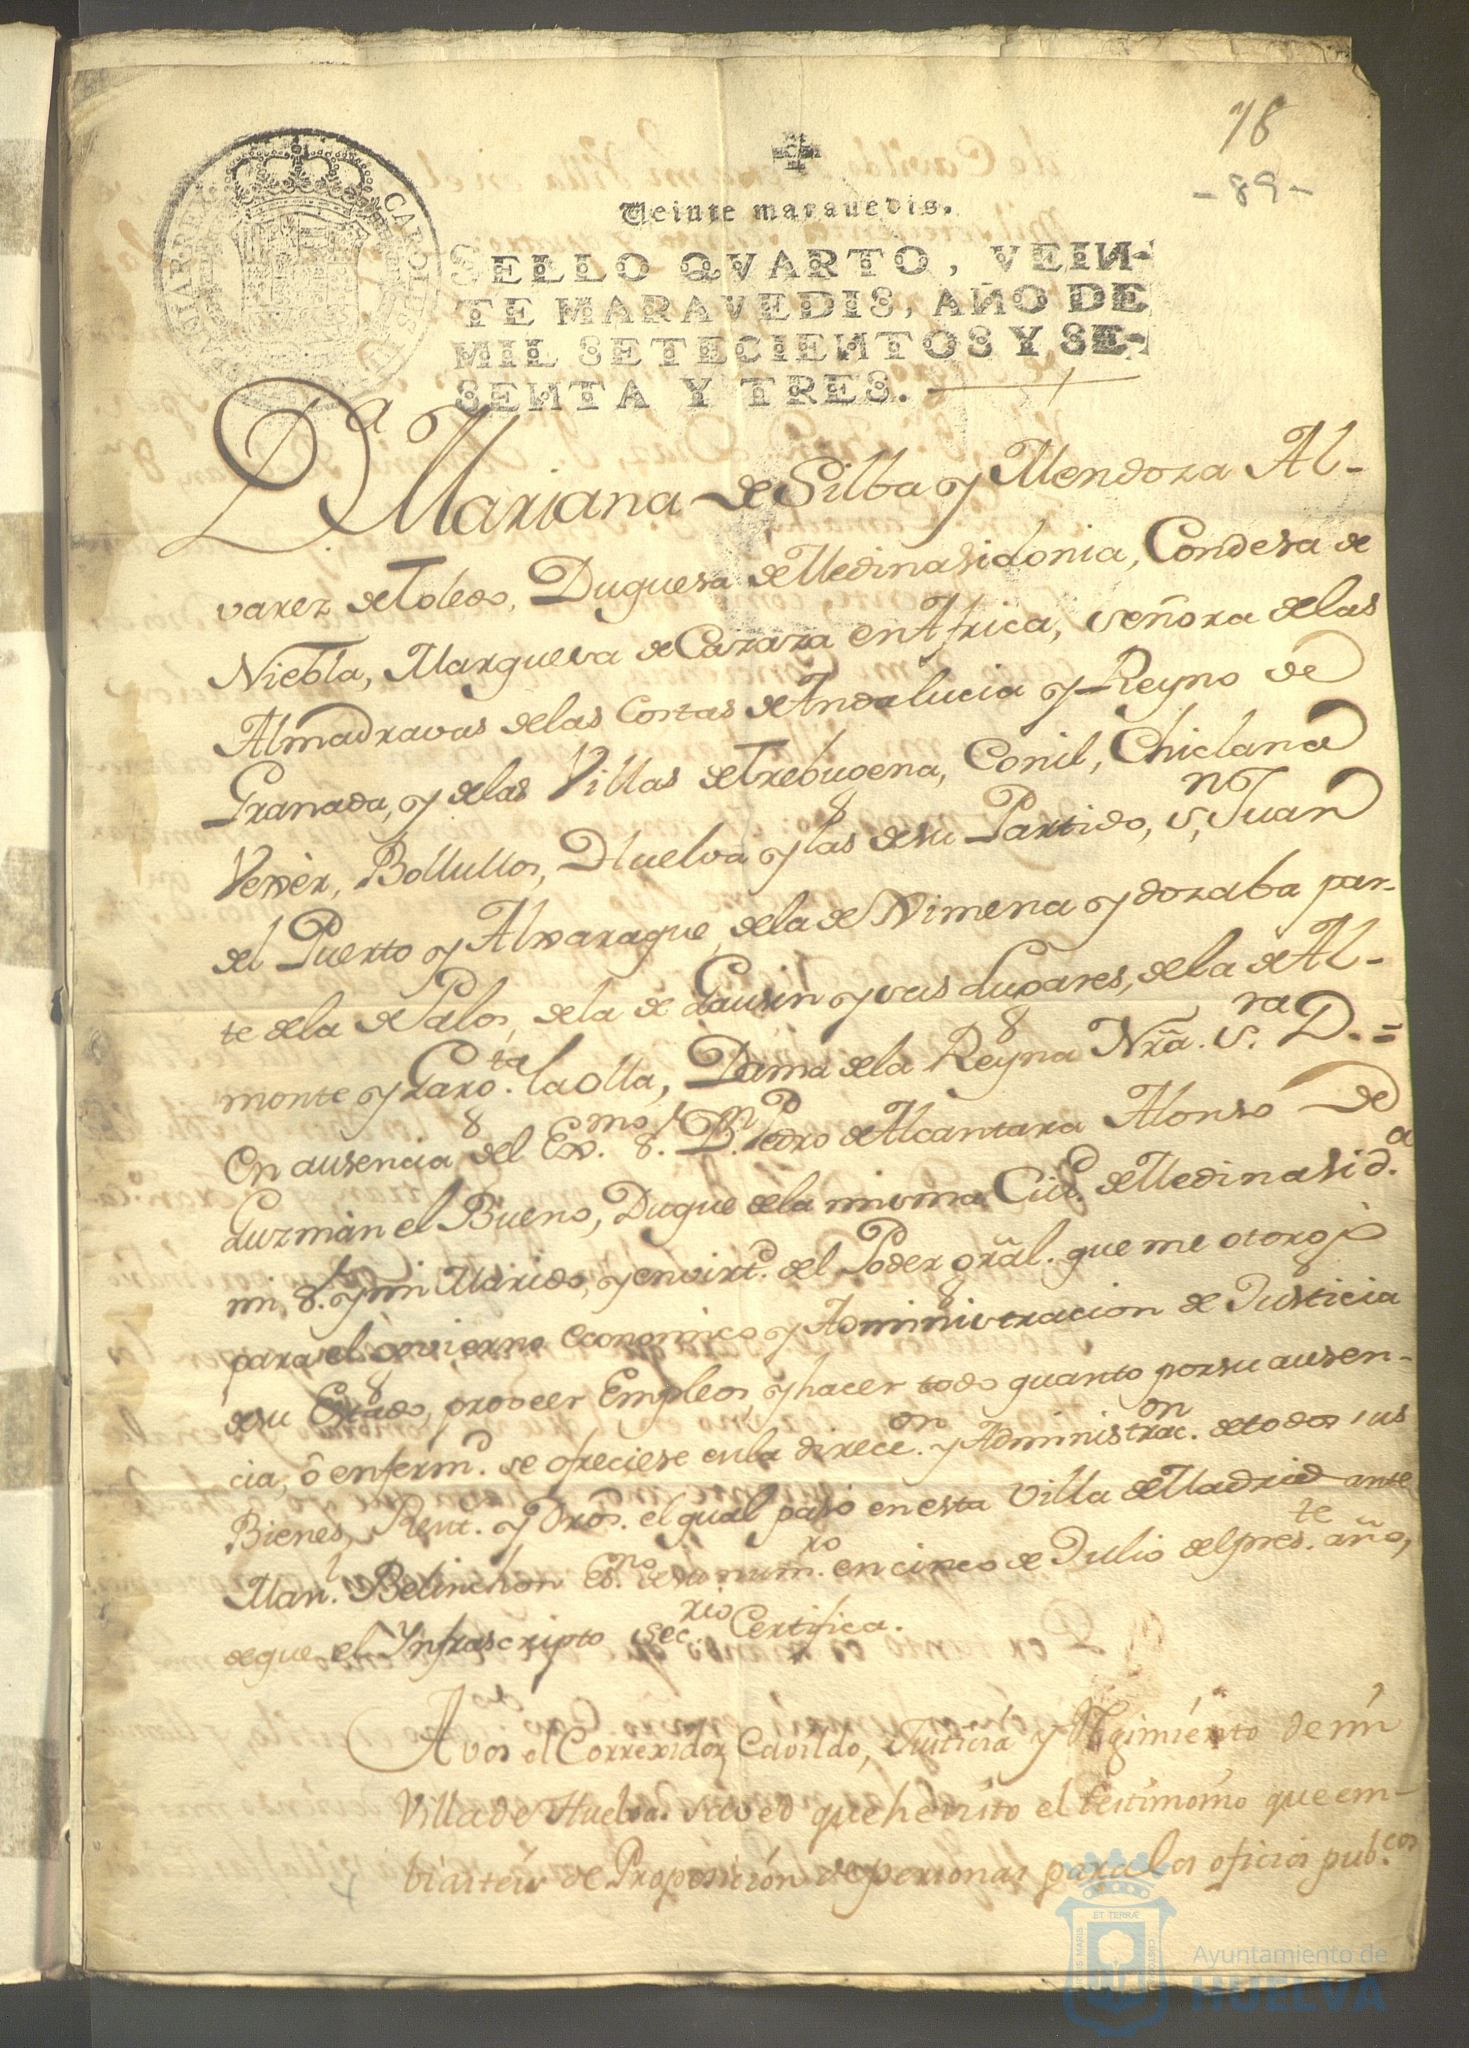 78
- 89 -
Veinte maravedis.
SELLO QVARTO, VEIN-
TE MARAVEDIS, AÑO DE
MIL SETECIENTOS Y SE-
SENTA Y TRES.
CAROLUS HISPANIAR. REX
D.ª Mariana de Silba y Mendoza Al-
varez de Toledo, Duquesa de Medinasidonia, Condesa de
Niebla, Marquesa de Cazaza en Africa, señora de las
Almadravas de las Costas de Andalucia y Reyno de
Granada, y de las Villas de Trebugena, Conil, Chiclana
Vexèr, Bollullos, Huelva y las de su Partido, S.n Juan
del Puerto y Alxaraque, de la de Ximena y dozaba par-
te de la de Palos, de la de Gausin y sus Lugares, de la de Al-
monte y Garo.ta la olla, Dama de la Reyna Nrã. S.ra D.=
En ausencia del Ex.mo S.r D.n Pedro de Alcantara Alonso de
Guzmàn el Bueno, Duque de la misma Ciu.d de Medinasid.a
mi S.r y mi Marido, y en virt.d del Poder grãl. que me otorgò
para el govierno economico y Administracion de Justicia
de su Estado, proveer Empleos, y hacer todo quanto por su ausen-
cia, ô enferm.d se ofreciese en la direcc.on y Administrac.on de todos sus
Bienes, Rent.s y Drõs. el qual pasò en esta Villa de Madrid ante
Man.l Belinchon Es.no de su num.ro en cinco de Julio del pres.te año,
de que el Infrascripto Sec.rio Certifica.
A vos el Correxidor, Cavildo, Justicia y Regimiento de mi
Villa de Huelva. Saved que he visto el testimonio que em-
biasteis de Proposición de personas para los oficios pub.cos
ET TERRÆ
Ayuntamiento de
HUELVA